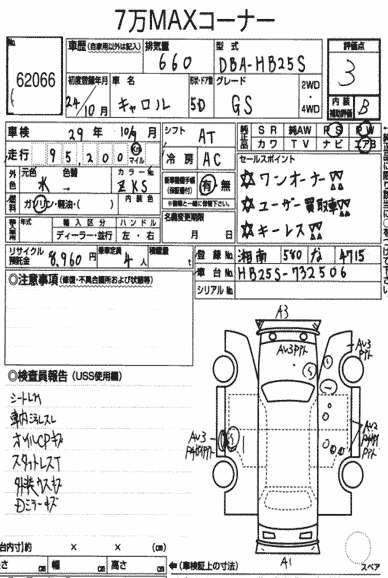 7万MAXコーナー
No.
62066
車歴 (自家用以外は記入)
排気量
660
型式
DBA-HB25S
評価点
3
初度登録年月
24年10月
車名
キャロル
形状・ドア数
5D
グレード
GS
2WD
・
4WD
内装
補助評価
B
車検
29年 10月
シフト
AT
純正品
SR 純AW PS PW
カワ TV ナビ エアB
走行
95,200
km
マイル
冷房
AC
セールスポイント
☆ワンオーナー!!
☆ユーザー買取車!!
☆キーレス!!
外色
元色
水
色替
→
カラーNo.
ZKS
有・無
燃料
ガソリン・軽油・( )
内装色
輸入車
年式
輸入区分
ディーラー・並行
ハンドル
左・右
名義変更期限
月 日
リサイクル預託金
8,960円
乗車定員
4人
積載量
t
登録No.
湘南 580 な 4715
車台No.
HB25S-732506
シリアルNo.
◎注意事項 (修復・不具合箇所および状態等)
◎検査員報告 (USS使用欄)
シートヨゴレ
車内ヨゴレスレ
スタットレスT
外装ウスキズ
Dミラーキズ
A3
AU3
PPト
AU3
PPト
AU3
AU2
PPト
A1
スペア
台内寸)約 × × (cm)
さ cm 幅 cm 高さ cm
←(車検証上の寸法)